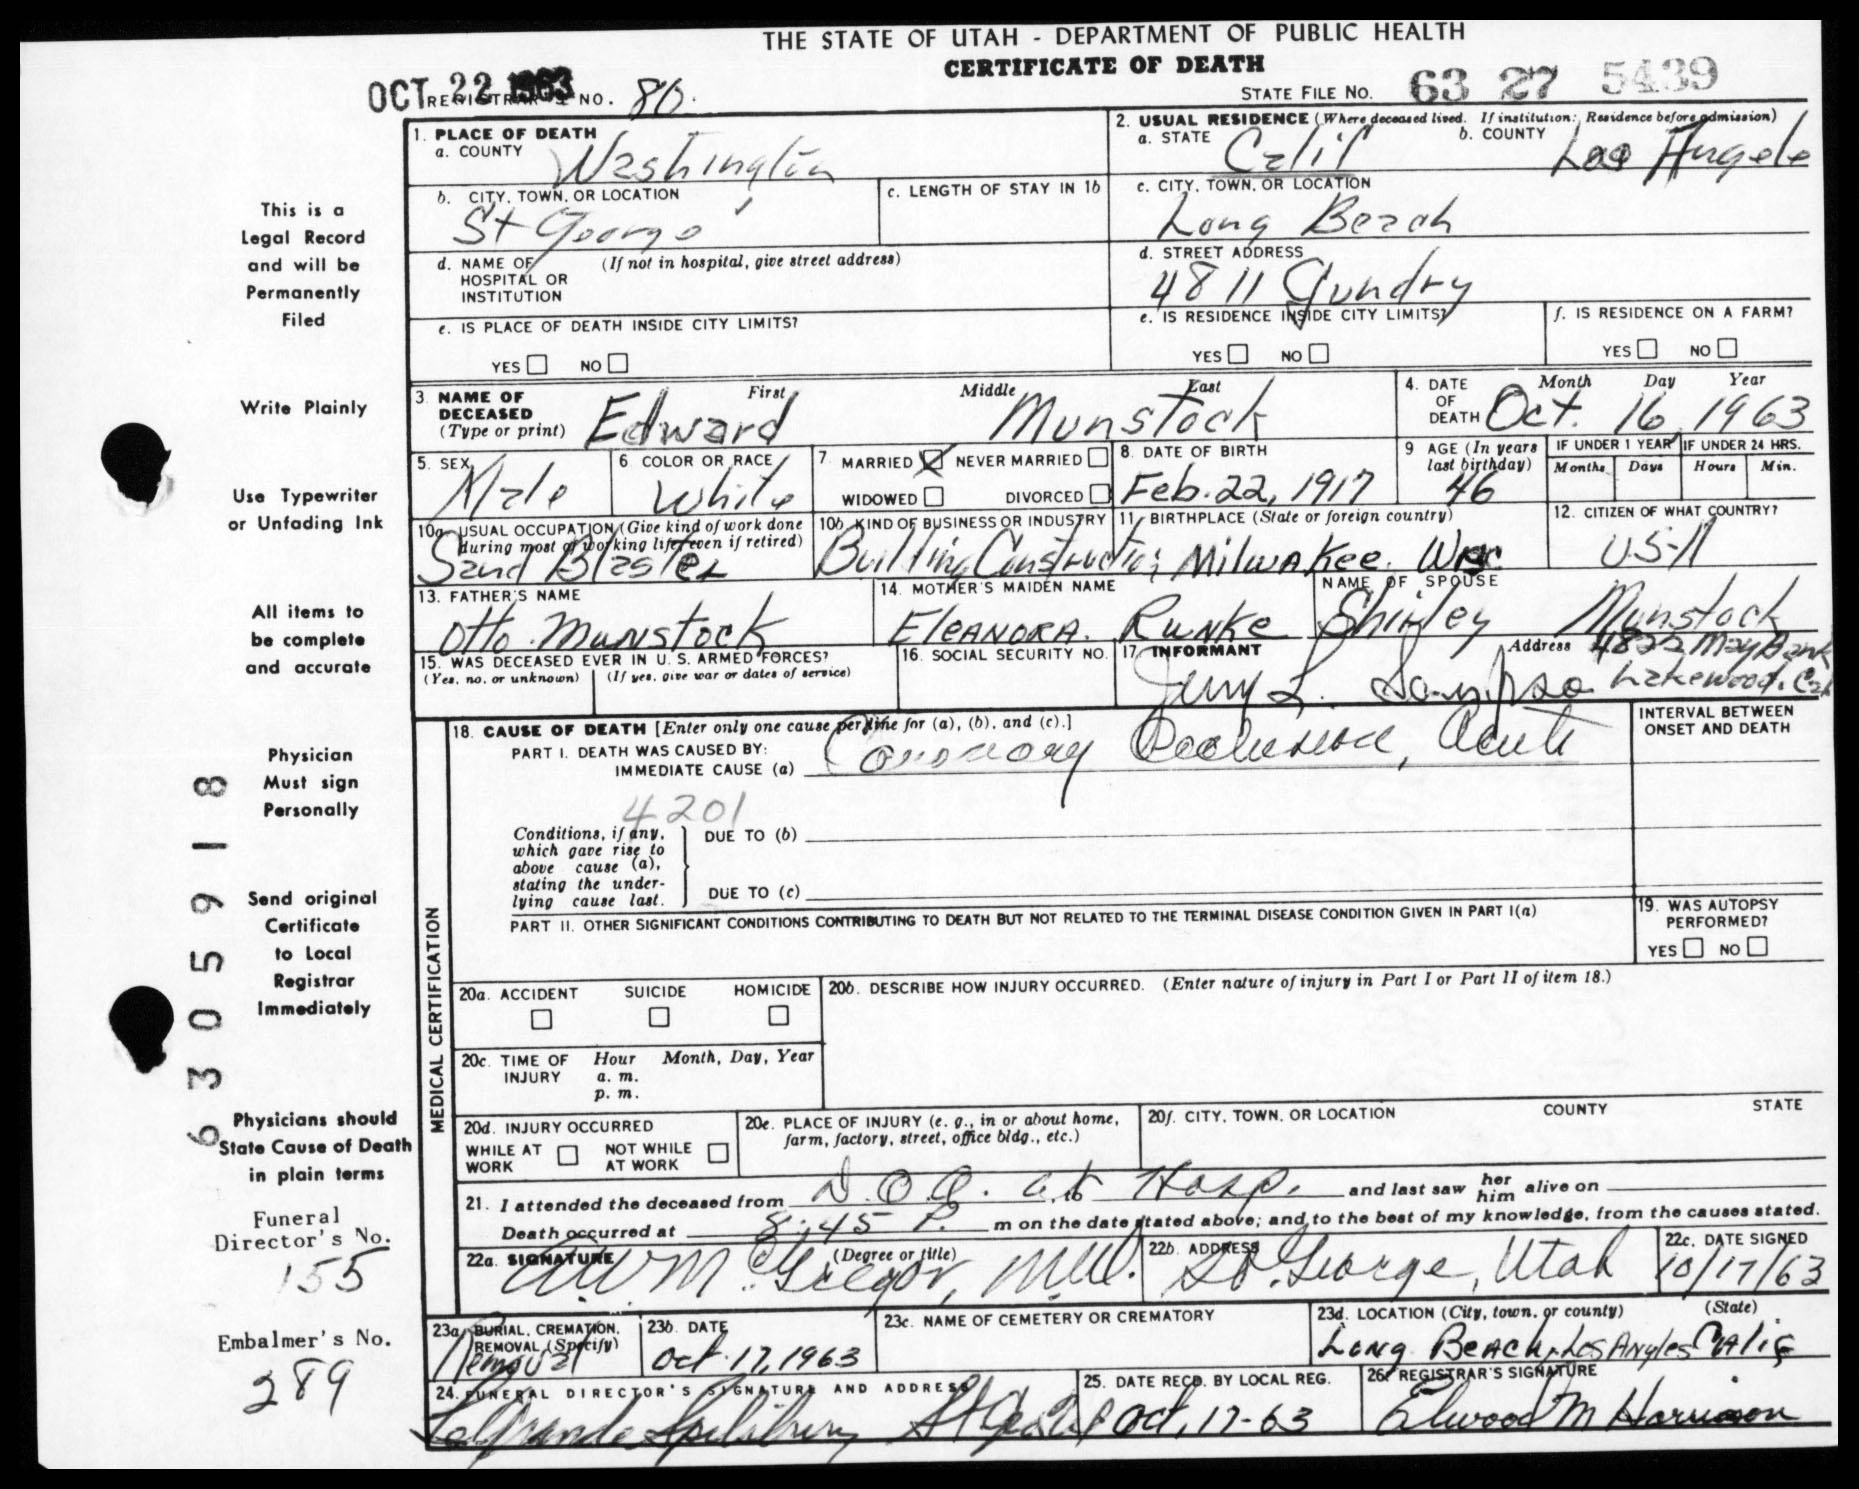 THE STATE OF UTAH - DEPARTMENT OF PUBLIC HEALTH
CERTIFICATE OF DEATH
OCT 22 1963
REGISTRAR'S NO. 80.
STATE FILE NO. 63 27 5439
1. PLACE OF DEATH
a. COUNTY Washington
2. USUAL RESIDENCE (Where deceased lived. If institution: Residence before admission)
a. STATE Calif b. COUNTY Los Angele
b. CITY, TOWN, OR LOCATION St George
c. LENGTH OF STAY IN 1b
c. CITY, TOWN, OR LOCATION
Long Beach
d. NAME OF HOSPITAL OR INSTITUTION (If not in hospital, give street address)
d. STREET ADDRESS
4811 Gundry
e. IS PLACE OF DEATH INSIDE CITY LIMITS?
YES NO
e. IS RESIDENCE INSIDE CITY LIMITS?
YES NO
f. IS RESIDENCE ON A FARM?
YES NO
3. NAME OF DECEASED (Type or print)
First Middle Last
Edward Munstock
4. DATE OF DEATH
Month Day Year
Oct. 16, 1963
5. SEX
Male
6. COLOR OR RACE
White
7. MARRIED NEVER MARRIED
WIDOWED DIVORCED
8. DATE OF BIRTH
Feb. 22, 1917
9 AGE (In years last birthday)
46
IF UNDER 1 YEAR
Months Days
IF UNDER 24 HRS.
Hours Min.
10a. USUAL OCCUPATION (Give kind of work done during most of working life, even if retired)
Sand Blaster
10b. KIND OF BUSINESS OR INDUSTRY
Building Construction
11. BIRTHPLACE (State or foreign country)
Milwakee, Wisc
12. CITIZEN OF WHAT COUNTRY?
USA
13. FATHER'S NAME
Otto Munstock
14. MOTHER'S MAIDEN NAME
Eleanora. Runke
NAME OF SPOUSE
Shirley Munstock
15. WAS DECEASED EVER IN U. S. ARMED FORCES?
(Yes, no, or unknown) (If yes, give war or dates of service)
16. SOCIAL SECURITY NO.
17. INFORMANT
Jerry L.
Address 4822 MayBank
Lakewood, Cal
18. CAUSE OF DEATH [Enter only one cause per line for (a), (b), and (c).]
PART I. DEATH WAS CAUSED BY:
IMMEDIATE CAUSE (a) Coronary Occlusion, Acute
INTERVAL BETWEEN ONSET AND DEATH
4201
Conditions, if any, which gave rise to above cause (a), stating the underlying cause last.
DUE TO (b)
DUE TO (c)
PART II. OTHER SIGNIFICANT CONDITIONS CONTRIBUTING TO DEATH BUT NOT RELATED TO THE TERMINAL DISEASE CONDITION GIVEN IN PART I(a)
19. WAS AUTOPSY PERFORMED?
YES NO
MEDICAL CERTIFICATION
20a. ACCIDENT SUICIDE HOMICIDE
20b. DESCRIBE HOW INJURY OCCURRED. (Enter nature of injury in Part I or Part II of item 18.)
20c. TIME OF INJURY
Hour Month, Day, Year
a. m.
p. m.
20d. INJURY OCCURRED
WHILE AT WORK NOT WHILE AT WORK
20e. PLACE OF INJURY (e. g., in or about home, farm, factory, street, office bldg., etc.)
20f. CITY, TOWN, OR LOCATION COUNTY STATE
21. I attended the deceased from D.O.A. at to Hosp. and last saw her him alive on
Death occurred at 8:45 P. m on the date stated above; and to the best of my knowledge, from the causes stated.
22a. SIGNATURE (Degree or title)
A.W. McGregor, M.D.
22b. ADDRESS
St. George, Utah
22c. DATE SIGNED
10/17/63
23a. BURIAL, CREMATION, REMOVAL (Specify)
Removal
23b. DATE
Oct. 17, 1963
23c. NAME OF CEMETERY OR CREMATORY
23d. LOCATION (City, town, or county) (State)
Long Beach, Los Angles Calif
24. FUNERAL DIRECTOR'S SIGNATURE AND ADDRESS
LeGrande Spilsbury St George
25. DATE RECD. BY LOCAL REG.
Oct, 17-63
26. REGISTRAR'S SIGNATURE
Elwood M Harrison
This is a
Legal Record
and will be
Permanently
Filed
Write Plainly
Use Typewriter
or Unfading Ink
All items to
be complete
and accurate
Physician
Must sign
Personally
Send original
Certificate
to Local
Registrar
Immediately
Physicians should
State Cause of Death
in plain terms
Funeral
Director's No.
155
Embalmer's No.
289
6305918